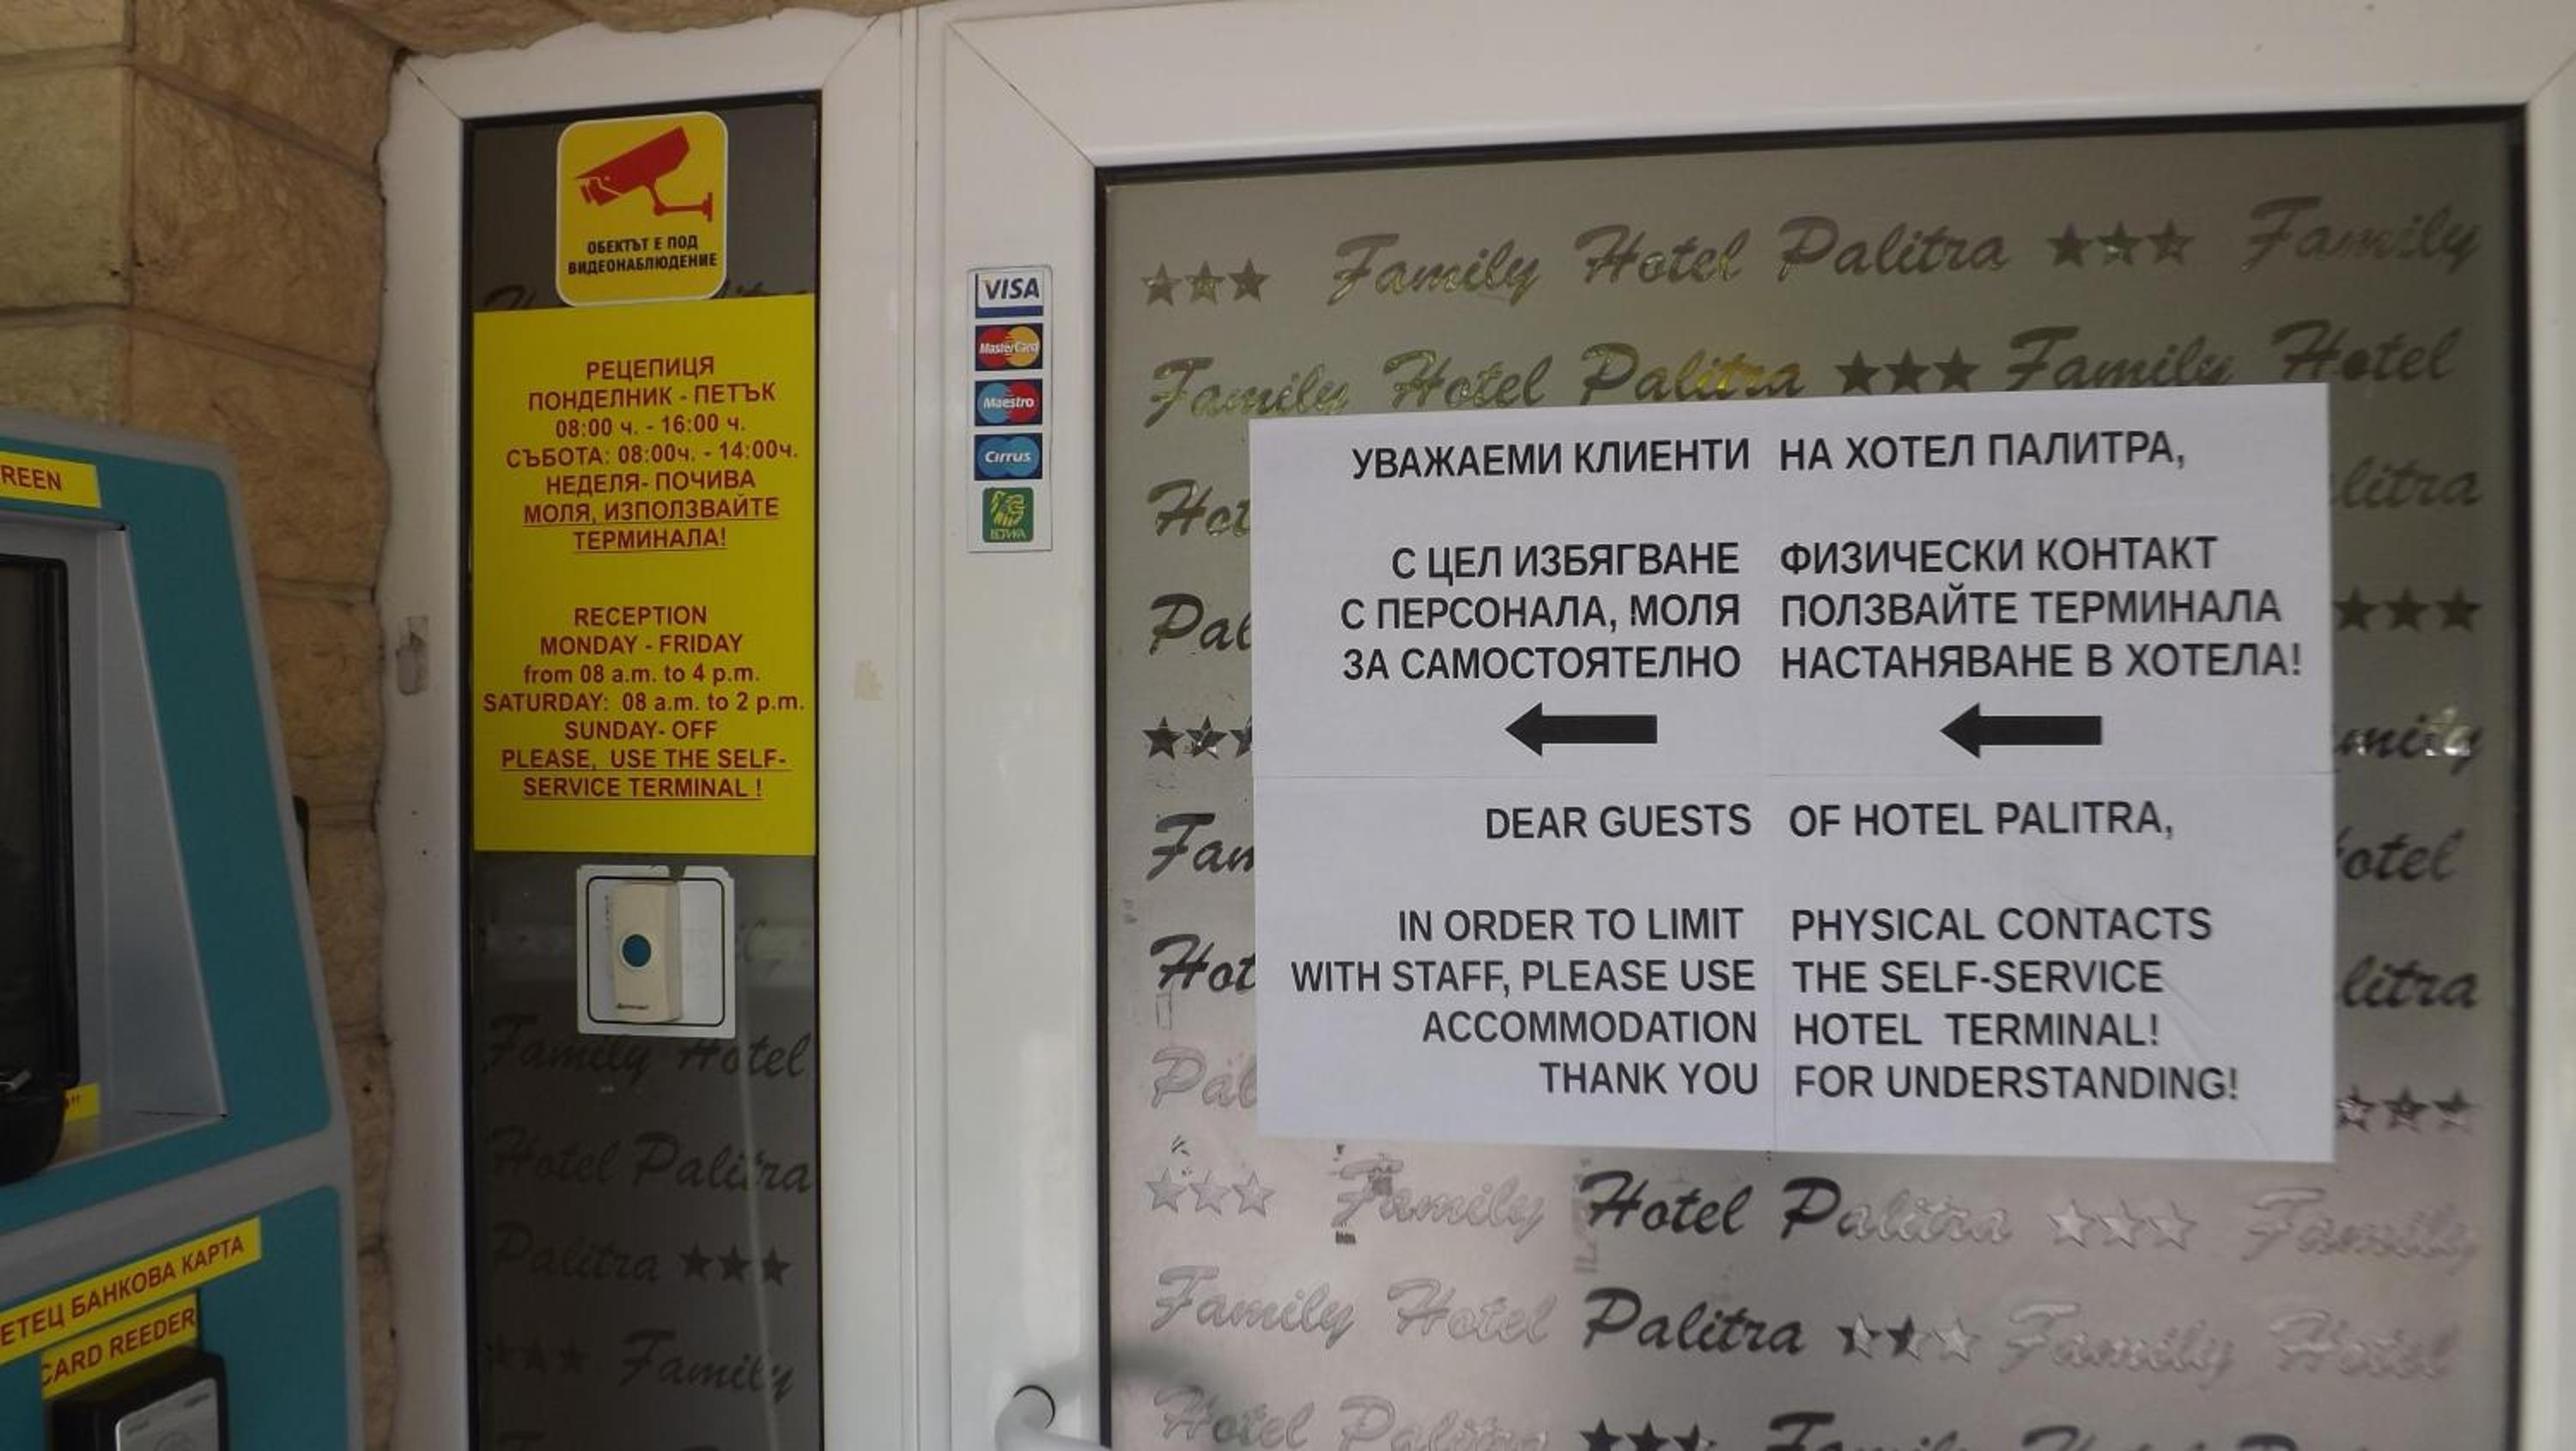 REEN
ЕТЕЦ БАНКОВА КАРТА
CARD REEDER
ОБЕКТЪТ Е ПОД
ВИДЕОНАБЛЮДЕНИЕ
РЕЦЕПИЦЯ
ПОНДЕЛНИК - ПЕТЪК
08:00 ч. - 16:00 ч.
СЪБОТА: 08:00ч. - 14:00ч.
НЕДЕЛЯ- ПОЧИВА
МОЛЯ, ИЗПОЛЗВАЙТЕ
ТЕРМИНАЛА!
RECEPTION
MONDAY - FRIDAY
from 08 a.m. to 4 p.m.
SATURDAY: 08 a.m. to 2 p.m.
SUNDAY- OFF
PLEASE, USE THE SELF-
SERVICE TERMINAL !
Family Hotel
Hotel Palitra
Palitra ★★★
★★★ Family
VISA
MasterCard
Maestro
Cirrus
★★★ Family Hotel Palitra ★★★ Family
Family Hotel Palitra ★★★ Family Hotel
Hot litra
Pal ★★★
★★★ mily
Fam otel
Hot litra
Pal ★★★
УВАЖАЕМИ КЛИЕНТИ НА ХОТЕЛ ПАЛИТРА,
С ЦЕЛ ИЗБЯГВАНЕ ФИЗИЧЕСКИ КОНТАКТ
С ПЕРСОНАЛА, МОЛЯ ПОЛЗВАЙТЕ ТЕРМИНАЛА
ЗА САМОСТОЯТЕЛНО НАСТАНЯВАНЕ В ХОТЕЛА!
DEAR GUESTS OF HOTEL PALITRA,
IN ORDER TO LIMIT PHYSICAL CONTACTS
WITH STAFF, PLEASE USE THE SELF-SERVICE
ACCOMMODATION HOTEL TERMINAL!
THANK YOU FOR UNDERSTANDING!
★★★ Family Hotel Palitra ★★★ Family
Family Hotel Palitra ★★★ Family Hotel
Hotel Palitra ★★★ Family Hotel